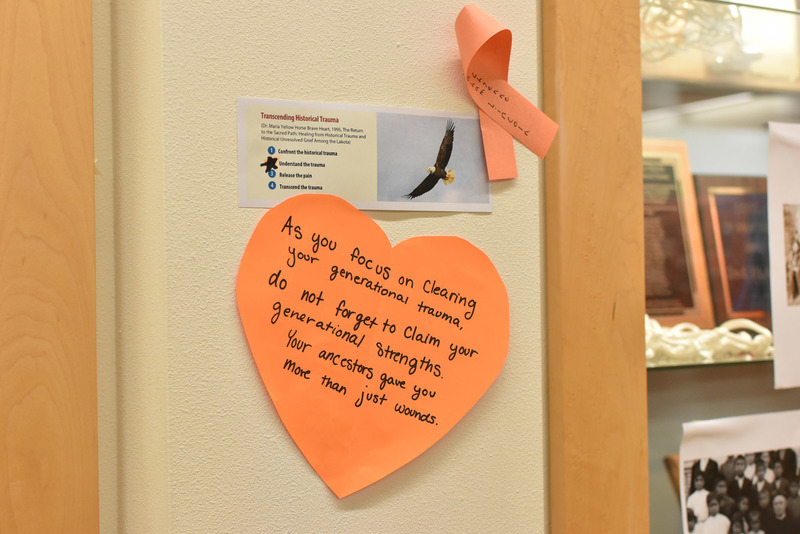 Transcending Historical Trauma
(Dr. Maria Yellow Horse Brave Heart, 1995, The Return
to the Sacred Path; Healing from Historical Trauma and
Historical Unresolved Grief Among the Lakota)
1 Confront the historical trauma
Understand the trauma
3 Release the pain
4 Transcend the trauma
As you focus on Clearing
your generational trauma,
do not forget to Claim your
generational strengths.
Your ancestors gave you
more than just wounds.